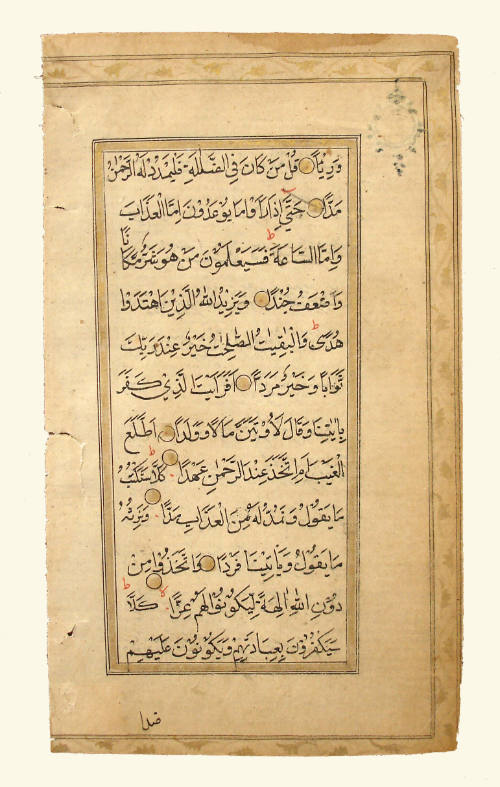 وَرِئْيًا قُلْ مَنْ كَانَ فِي الضَّلٰلَةِ فَلْيَمْدُدْ لَهُ الرَّحْمٰنُ
مَدًّا حَتّٰي اِذَا رَاَوْا مَا يُوعَدُونَ اِمَّا الْعَذَابَ
وَاِمَّا السَّاعَةَ فَسَيَعْلَمُونَ مَنْ هُوَ شَرٌّ مَكَانًا
وَاَضْعَفُ جُنْدًا وَيَزِيدُ اللّٰهُ الَّذِينَ اهْتَدَوْا
هُدًى وَالْبٰقِيٰتُ الصّٰلِحٰتُ خَيْرٌ عِنْدَ رَبِّكَ
ثَوَابًا وَخَيْرٌ مَرَدًّا اَفَرَاَيْتَ الَّذِي كَفَرَ
بِاٰيٰتِنَا وَقَالَ لَاُوتَيَنَّ مَالًا وَوَلَدًا اَطَّلَعَ
الْغَيْبَ اَمِ اتَّخَذَ عِنْدَ الرَّحْمٰنِ عَهْدًا كَلَّا سَنَكْتُبُ
مَا يَقُولُ وَنَمُدُّ لَهُ مِنَ الْعَذَابِ مَدًّا وَنَرِثُهُ
مَا يَقُولُ وَيَأْتِينَا فَرْدًا وَاتَّخَذُوا مِنْ
دُونِ اللّٰهِ اٰلِهَةً لِيَكُونُوا لَهُمْ عِزًّا كَلَّا
سَيَكْفُرُونَ بِعِبَادَتِهِمْ وَيَكُونُونَ عَلَيْهِمْ
ضدا